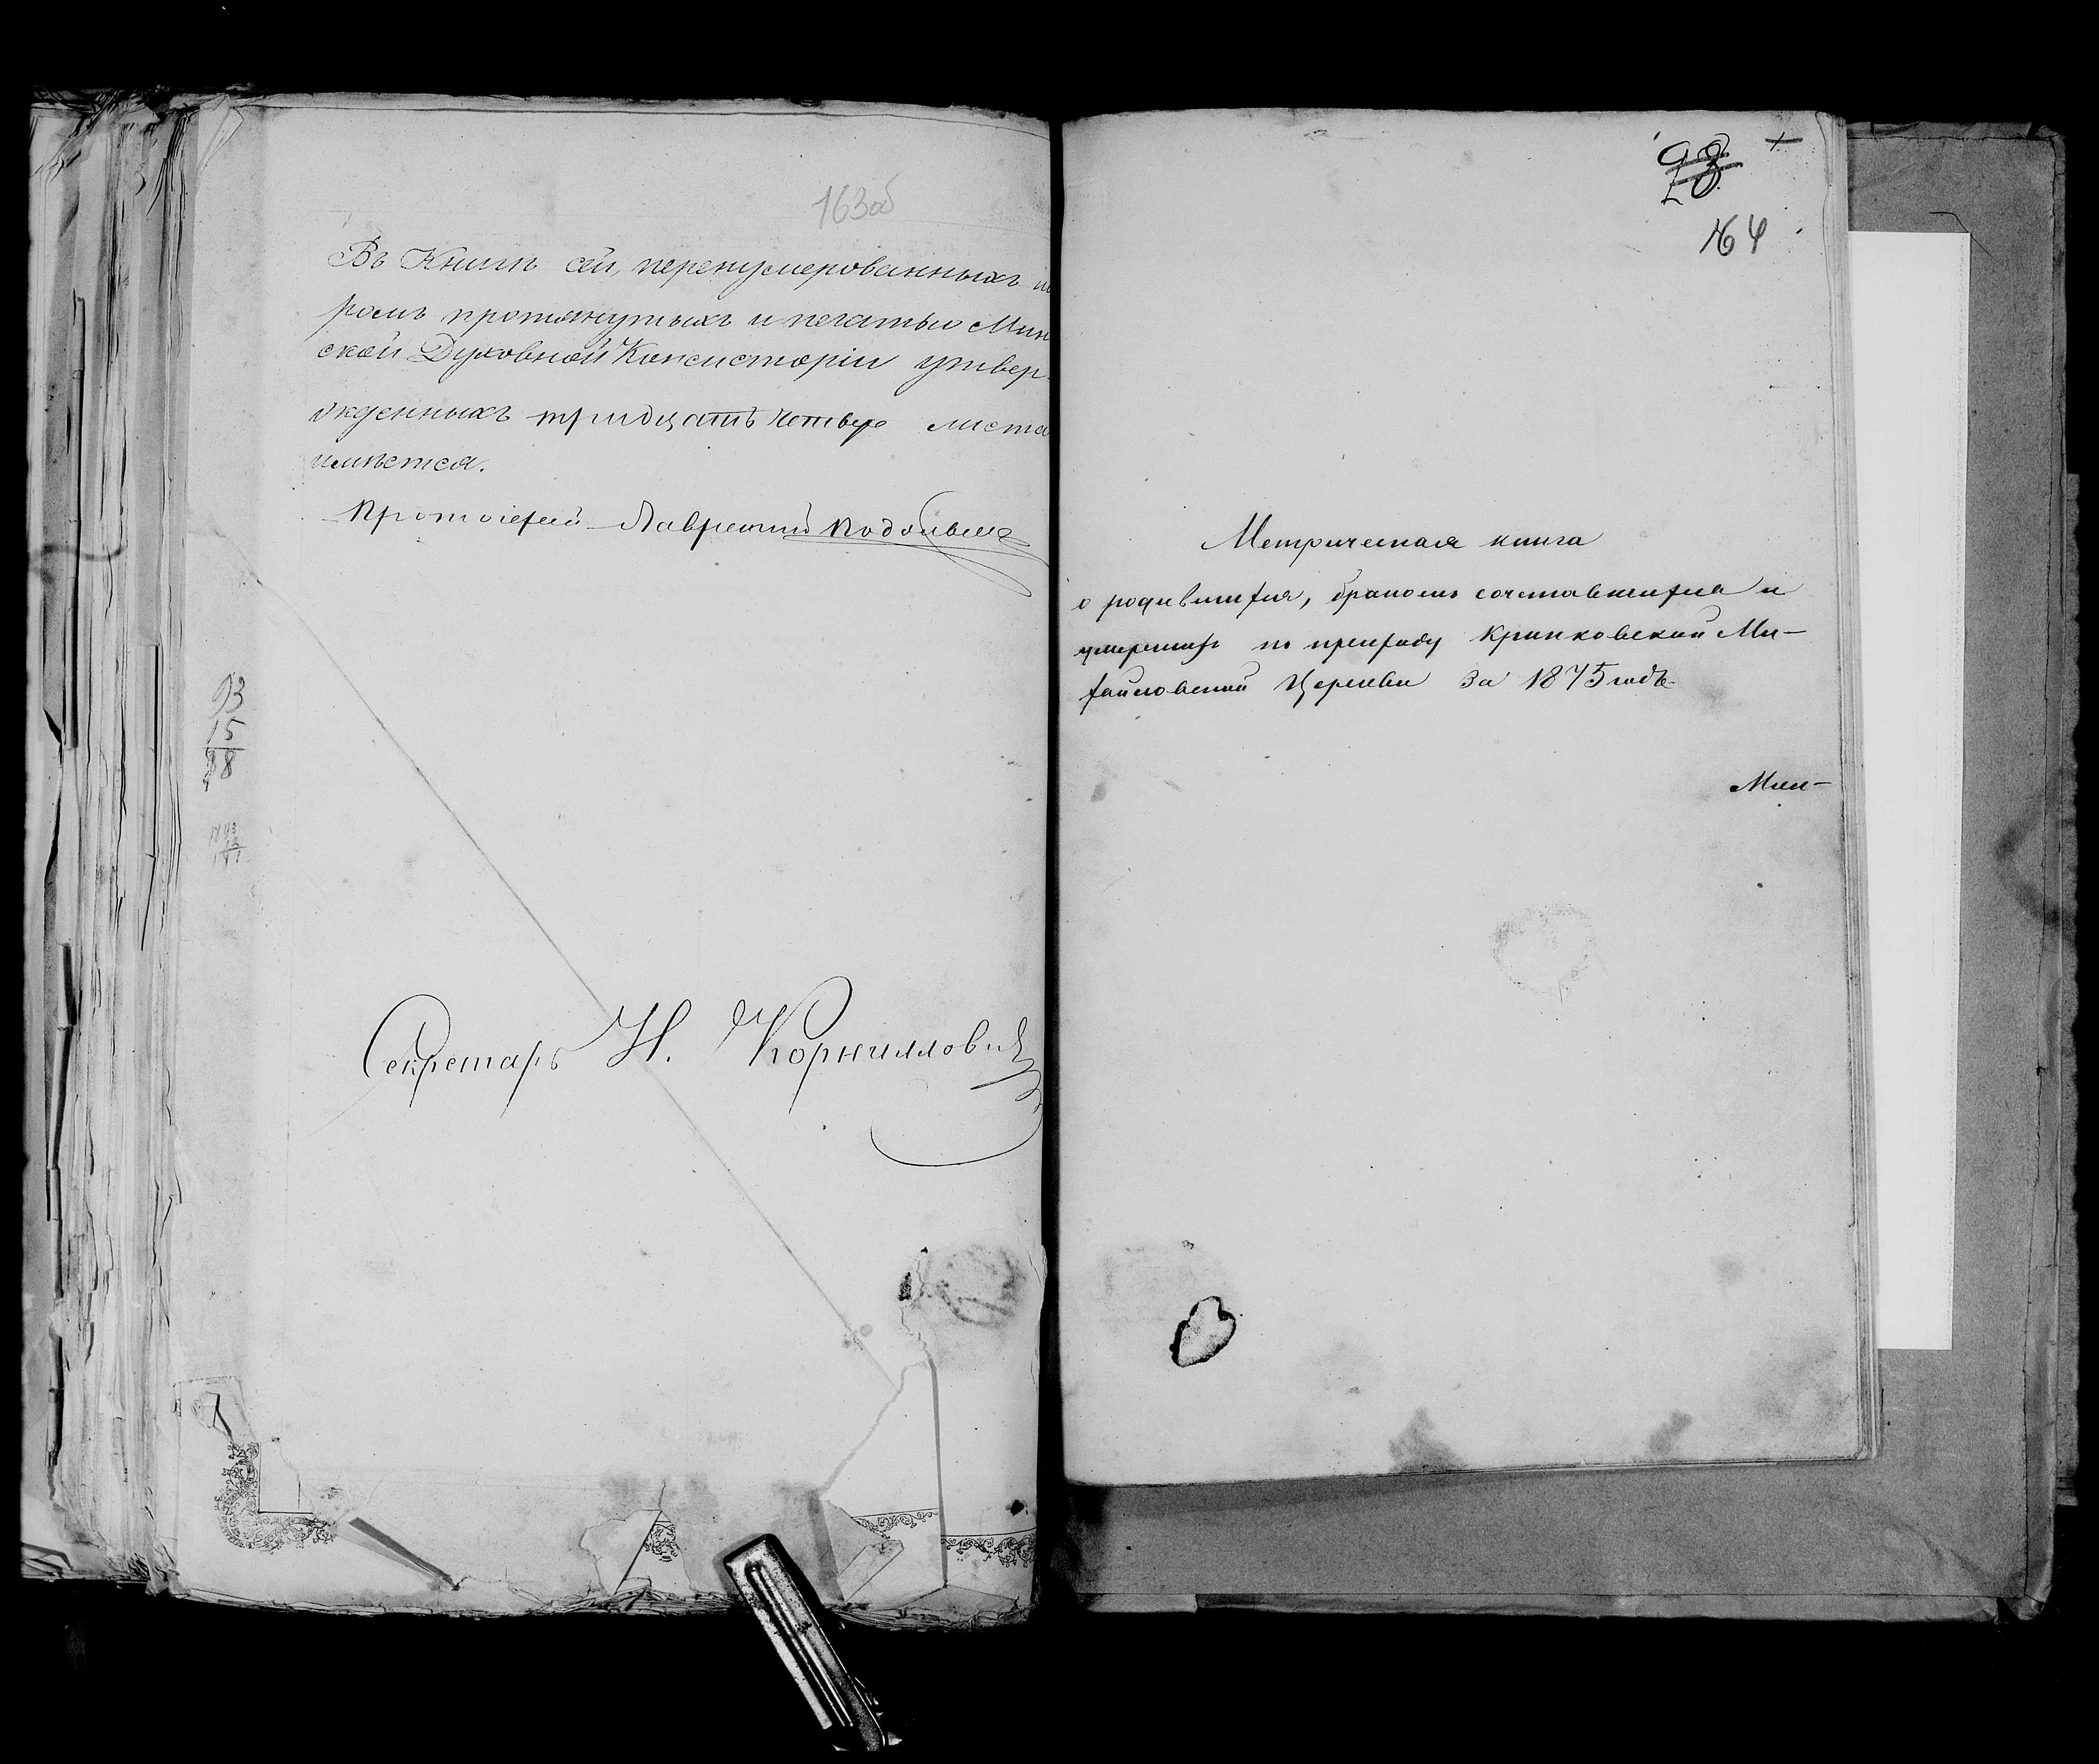 163об
Въ Книгѣ сей, перенумерованныхъ ш
ромъ протянутыхъ и печатью Мин
ской Духовной Консисторіи утвер-
жденныхъ тридцать четыре листа
имѣется.
Протоіерей Лаврентій
93
15
98
Секретарь Н. Корнилловичъ
98
164
Метрическая книга
о родившихся, бракомъ сочетавшихся и
умершихъ по приходу Кривковской Ми-
хайловской Церкви за 1875 годъ
Мин-